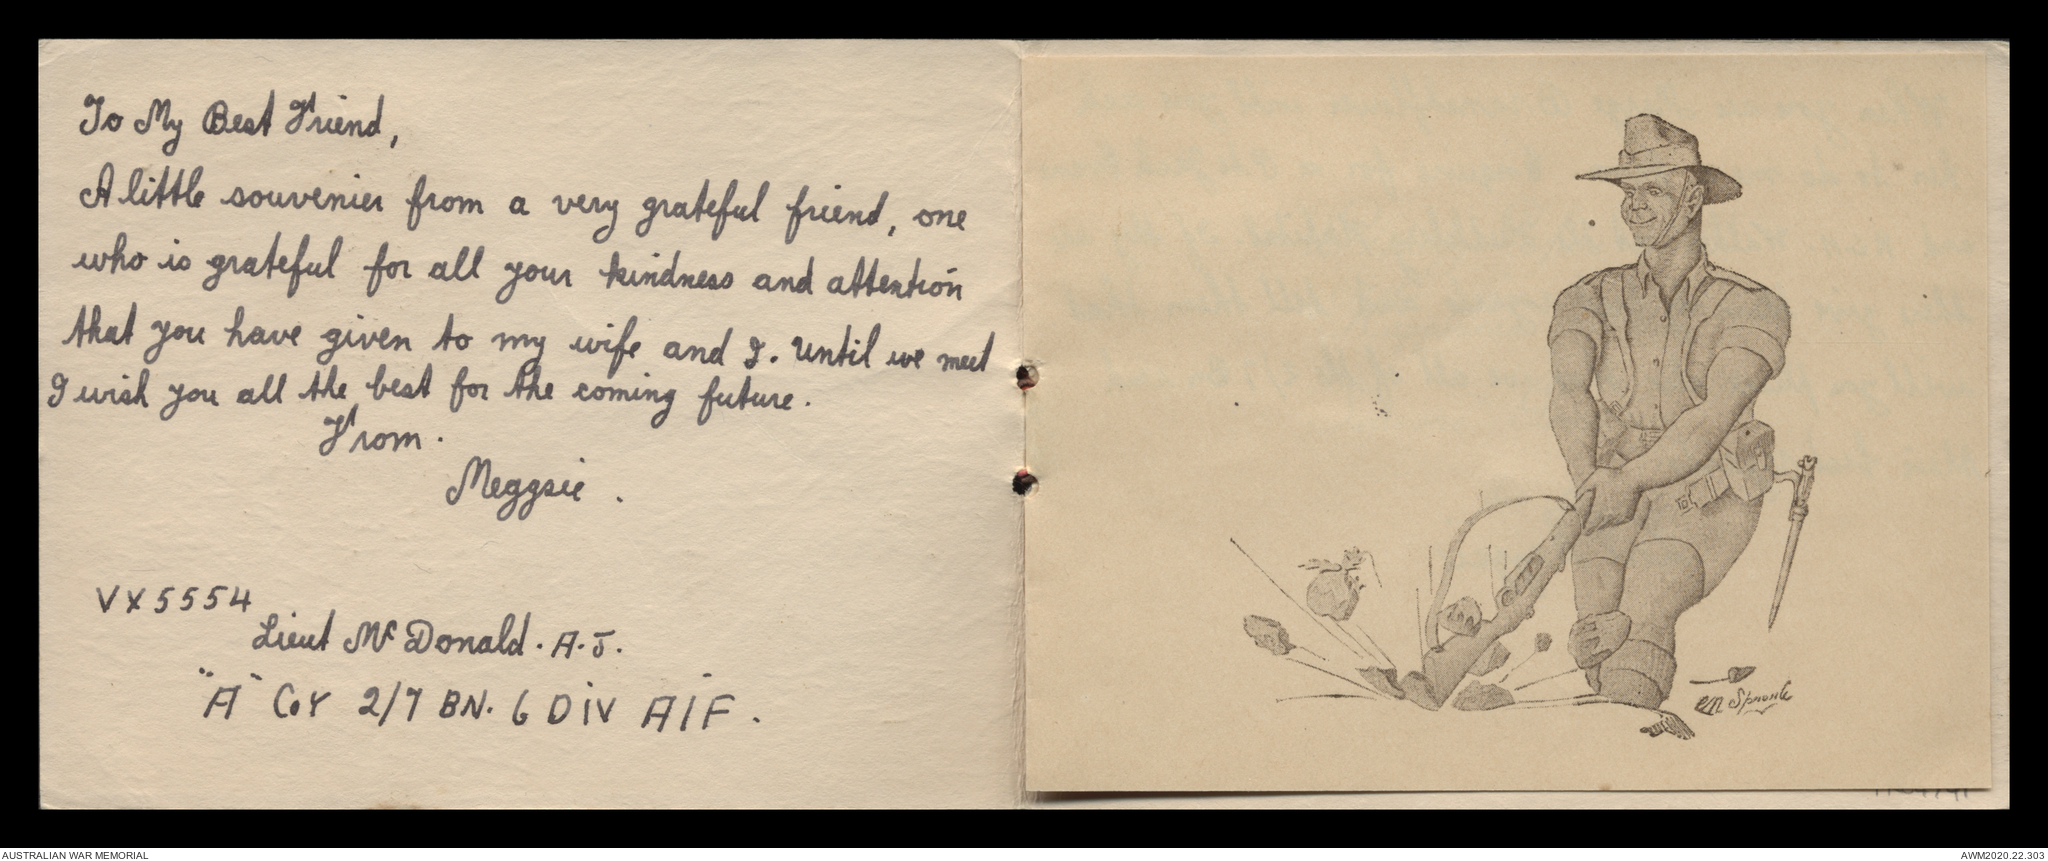 To My Best Friend,
A little souvenier from a very grateful friend, one
who is grateful for all your kindness and attention
that you have given to my wife and I. Until we meet
I wish you all the best for the coming future.
From.
Meggsie.
VX5554
Lieut McDonald. A.J.
"A" CoY 2/7 BN. 6 DIV AIF.
Sproule
AUSTRALIAN WAR MEMORIAL
AWM2020.22.303